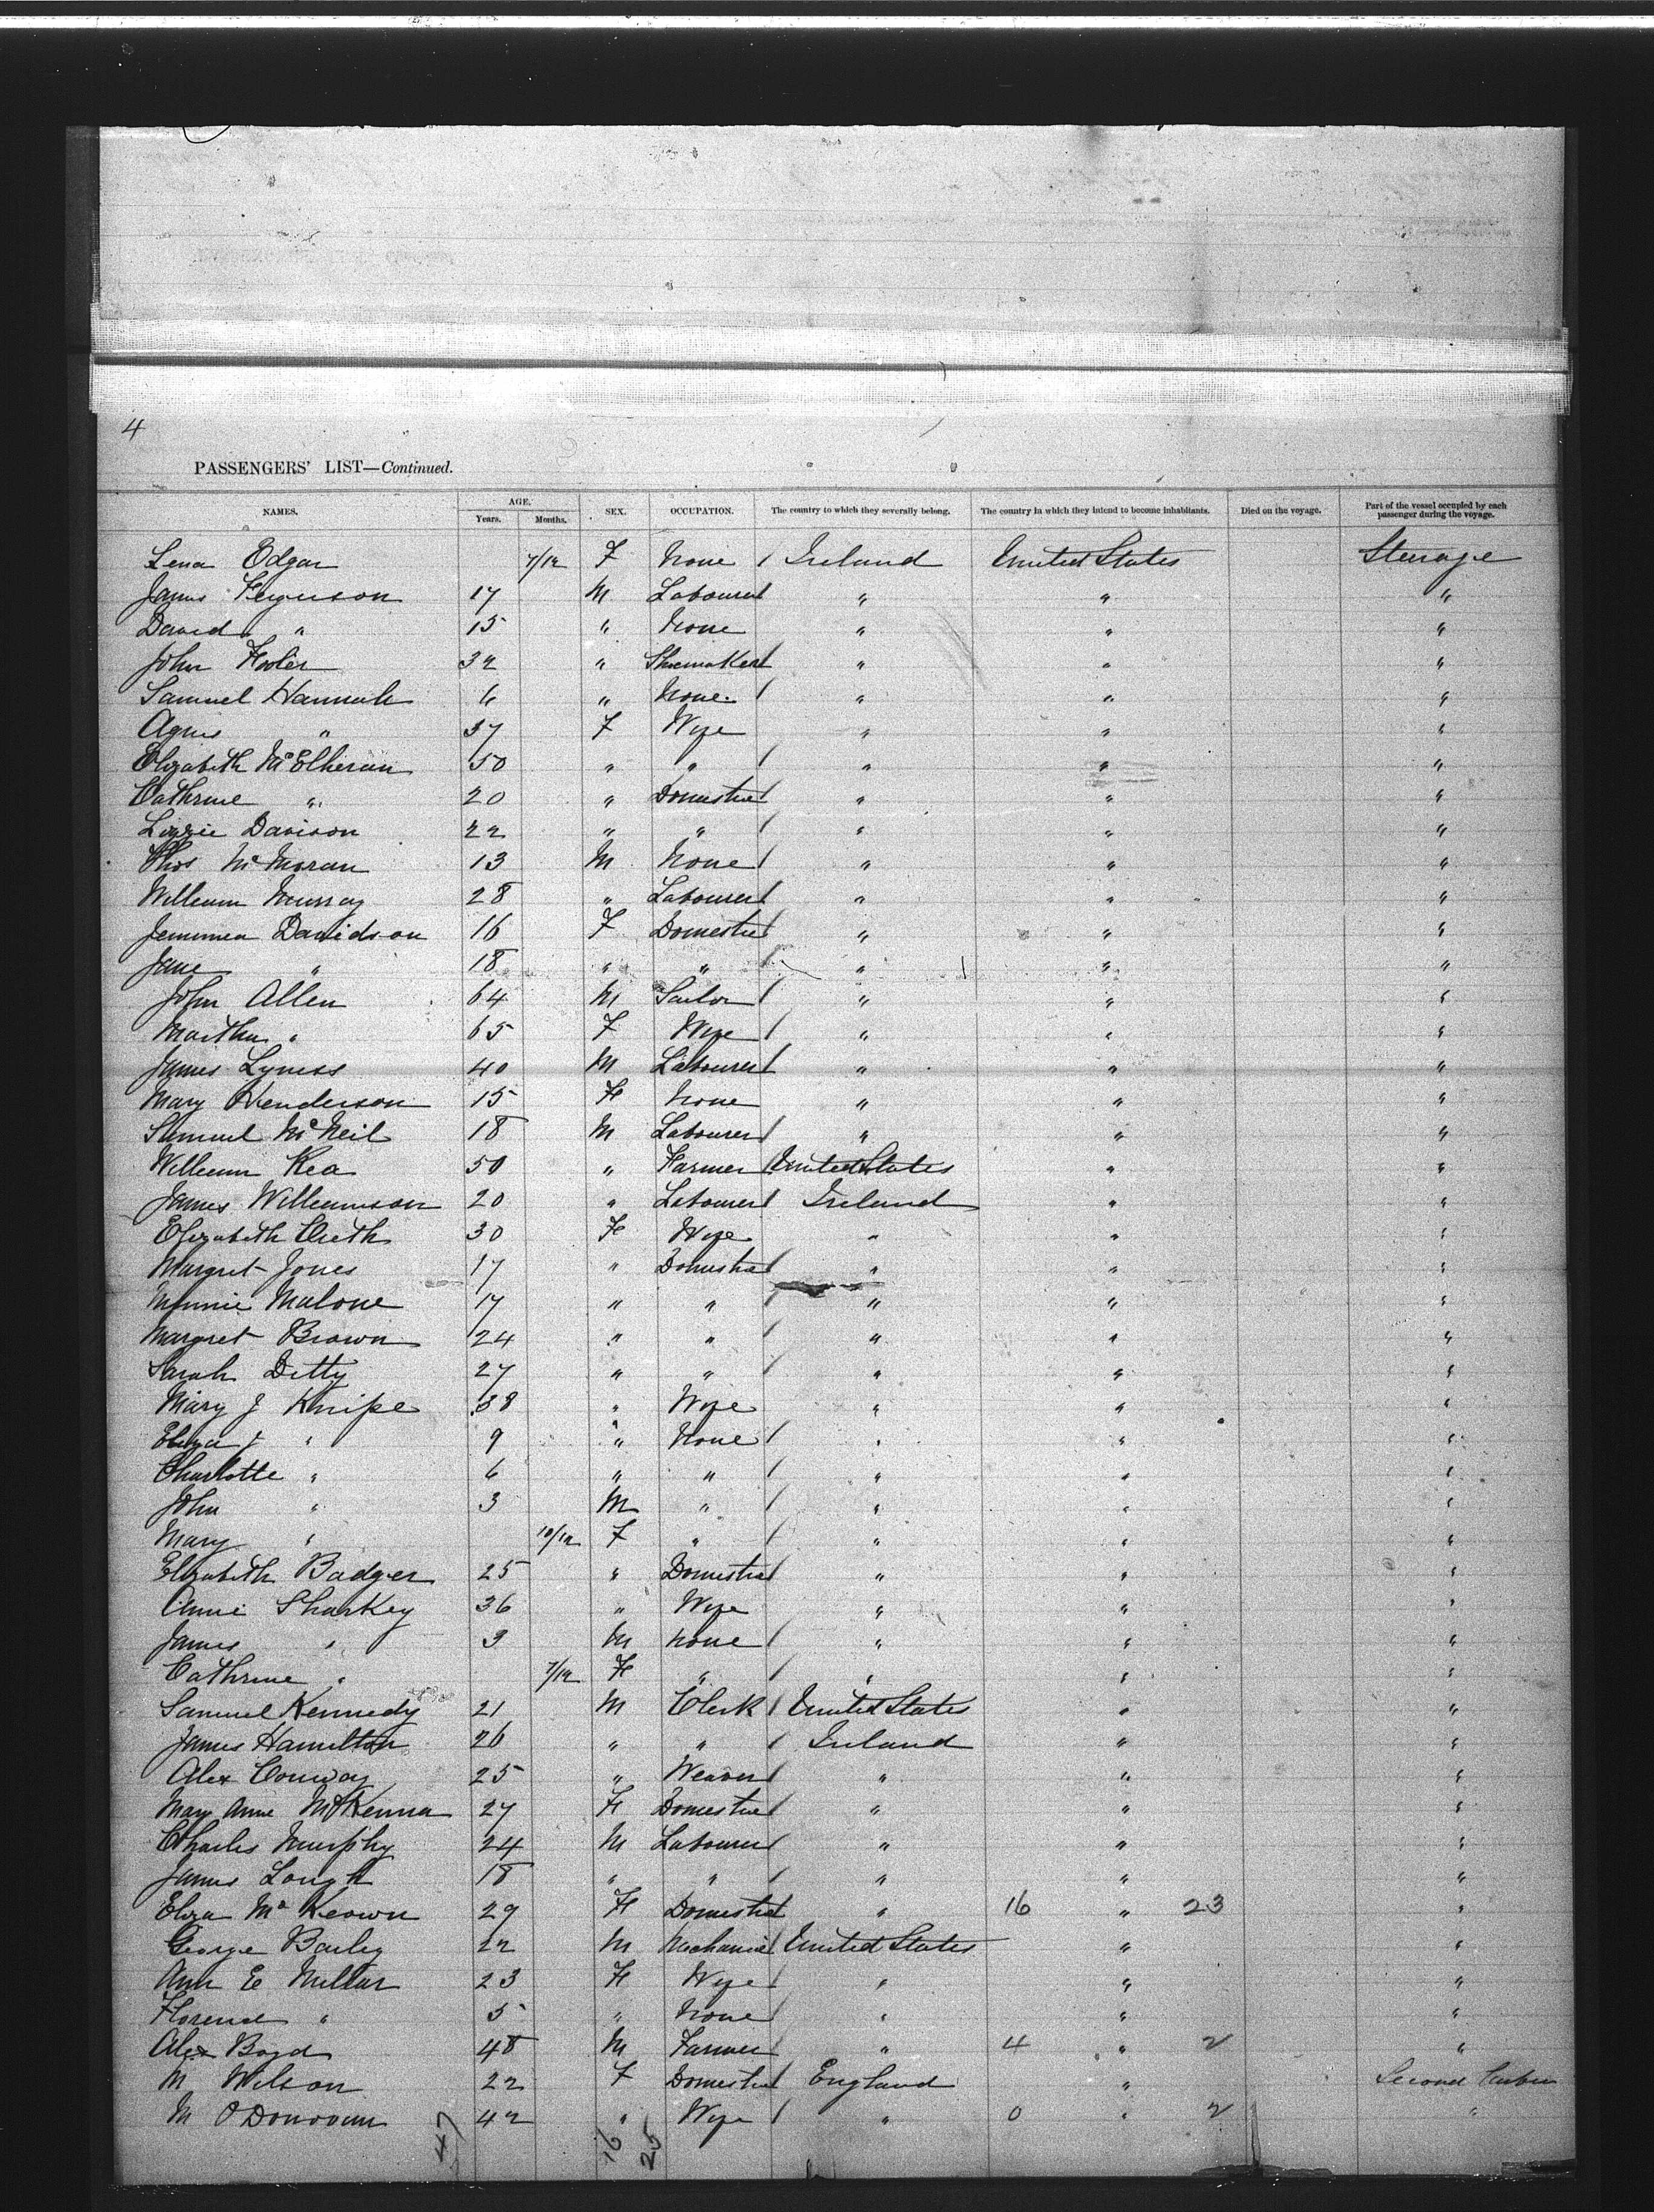 4
PASSENGERS' LIST—Continued.
NAMES. AGE. Years. Months. SEX. OCCUPATION. The country to which they severally belong. The country in which they intend to become inhabitants. Died on the voyage. Part of the vessel occupied by each passenger during the voyage.
Lena Edgar 7/12 F None / Ireland United States Steerage
James Ferguson 17 M Labourer / " " "
David " 15 " None " " "
John 32 " Shoemaker / " " "
Samuel Hannah 6 " None. / " " "
Agnes " 37 F Wife " " "
Elizabeth McElheran 50 " " / " " "
Cathrine " 20 " Domestic / " " "
Lizzie Davison 22 " " / " " "
Thos McMoran 13 M None / " " "
William Murray 28 " Labourer / " " "
Jemimea Davidson 16 F Domestic / " " "
Jane " 18 " " / " " "
John Allen 64 M / " " "
Martha " 65 F Wife / " " "
James Lyness 40 M Labourer / " " "
Mary Henderson 15 F None " " "
Samuel McNeil 18 M Labourer / " " "
William Rea 50 " Farmer / United States " "
James Williamson 20 " Labourer / Ireland " "
Elizabeth 30 F Wife " " "
Margret Jones 17 " Domestic / " " "
Minnie Malone 17 " " / " " "
Margret Brown 24 " " / " " "
Sarah Ditty 27 " " / " " "
Mary J Knipe 38 " Wife " " "
Eliza J " 9 " None / " " "
Charlotte " 6 " " / " " "
John " 3 M " / " " "
Mary " 10/12 F " / " " "
Elizabeth Badger 25 " Domestic / " " "
Annie Sharkey 36 " Wife " " "
James " 3 M None / " " "
Cathrine " 7/12 F " / " " "
Samuel Kennedy 21 M Clerk / United States " "
James Hamilton 26 " " / Ireland " "
Alex Conway 25 " Weaver / " " "
Mary Anne McKenna 27 F Domestic / " " "
Charles Murphy 24 M Labourer / " " "
James Lough 18 " " / " " "
Eliza McKeown 29 F Domestic / " 16 " 23 "
George Bailey 22 M Mechanic / United States " "
Ann E Millar 23 F Wife / " " "
Florence " 5 " None / " " "
Alex Boyd 48 M Farmer / " 4 " 2 "
M Wilson 22 F Domestic / England " Second Cabin
M O'Donovan 42 " Wife / " 0 " 2 "
47 16 25